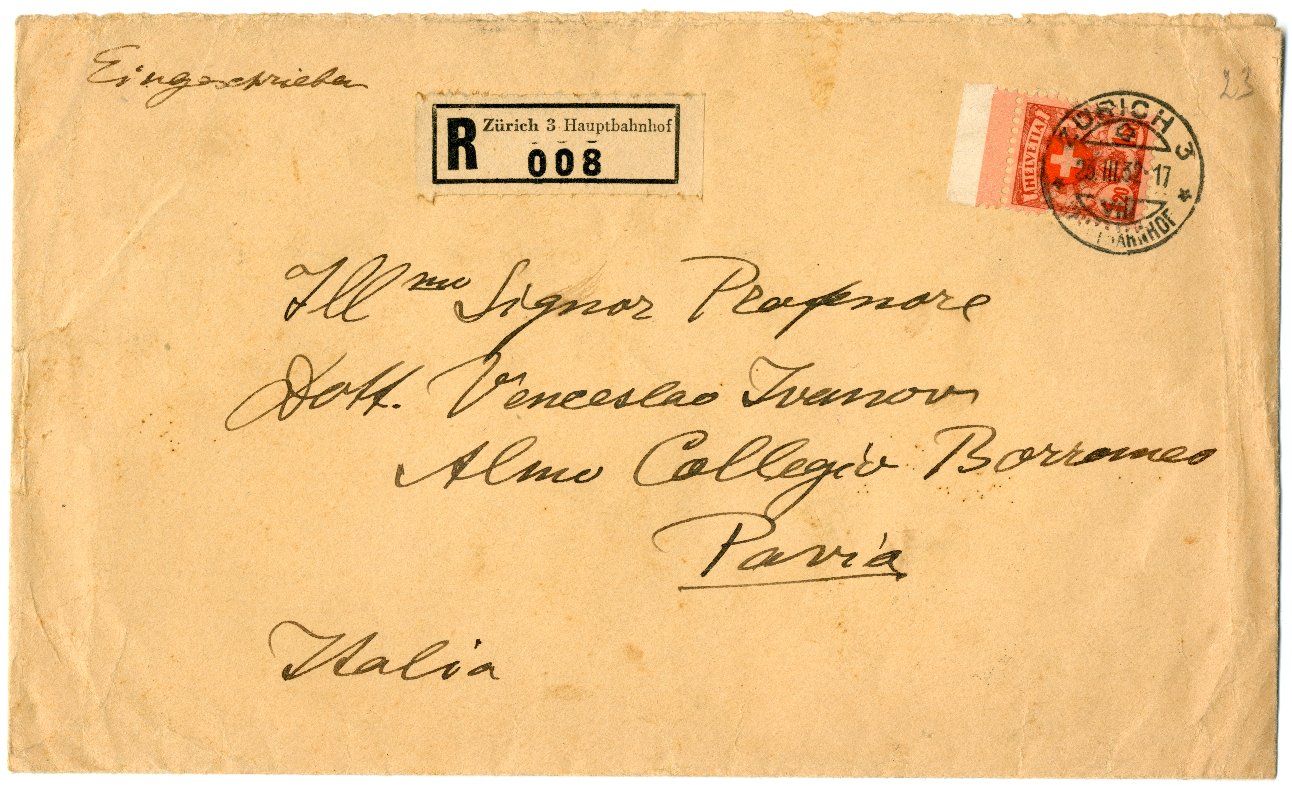 Eingeschrieben
23
R Zürich 3 Hauptbahnhof
008
HELVETIA
1.20
ZÜRICH 3
III.32-17
BAHNHOF
Ill mo Signor Professore
Dott. Venceslao Ivanov
Almo Collegio Borromeo
Pavia
Italia